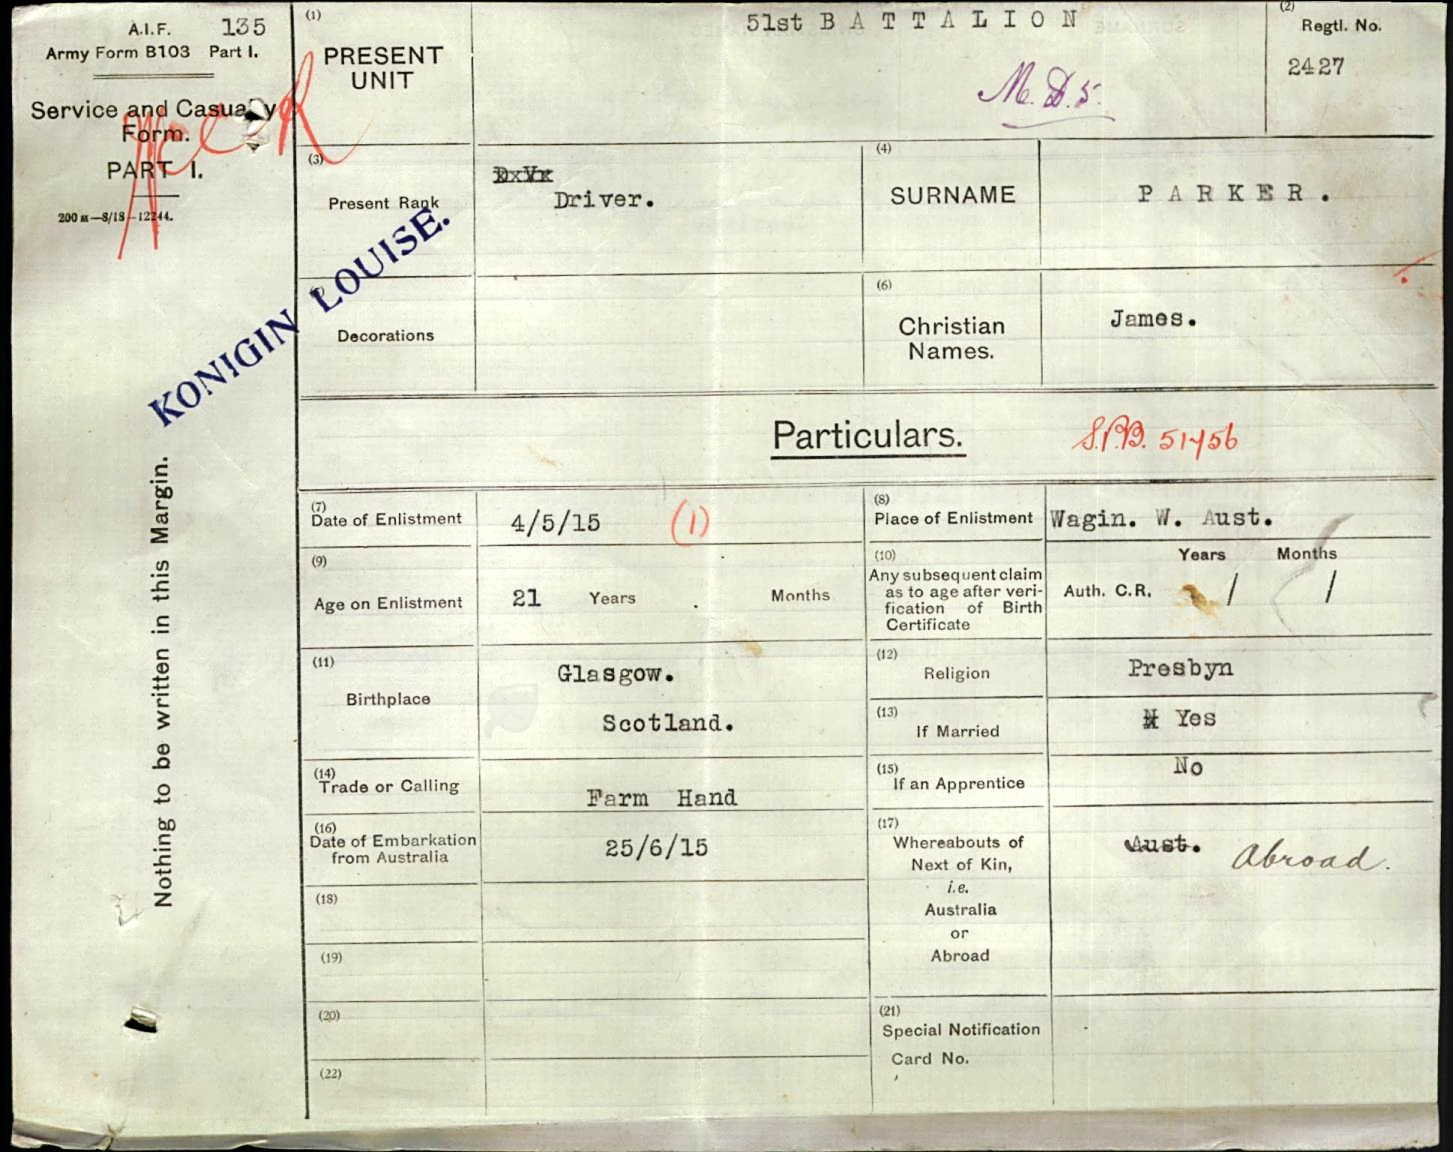 A.I.F. 135
Army Form B103 Part I.
Service and Casualty
Form.
PART I.
200 M—8/18—12244.
KONIGIN LOUISE.
Nothing to be written in this Margin.
(1)
PRESENT
UNIT
51st B A T T A L I O N
M.D.5.
(2)
Regtl. No.
2427
(3)
Present Rank
Driver.
(4)
SURNAME
P A R K E R .
Decorations
(6)
Christian
Names.
James.
Particulars.
S.P.B. 51456
(7)
Date of Enlistment
4/5/15 (1)
(8)
Place of Enlistment
Wagin. W. Aust.
(9)
Age on Enlistment
21 Years Months
(10)
Any subsequent claim
as to age after veri-
fication of Birth
Certificate
Years Months
Auth. C.R. / /
(11)
Birthplace
Glasgow.
Scotland.
(12)
Religion
Presbyn
(13)
If Married
N Yes
(14)
Trade or Calling
Farm Hand
(15)
If an Apprentice
No
(16)
Date of Embarkation
from Australia
25/6/15
(17)
Whereabouts of
Next of Kin,
i.e.
Australia
or
Abroad
Aust. Abroad.
(18)
(19)
(20)
(21)
Special Notification
Card No.
(22)